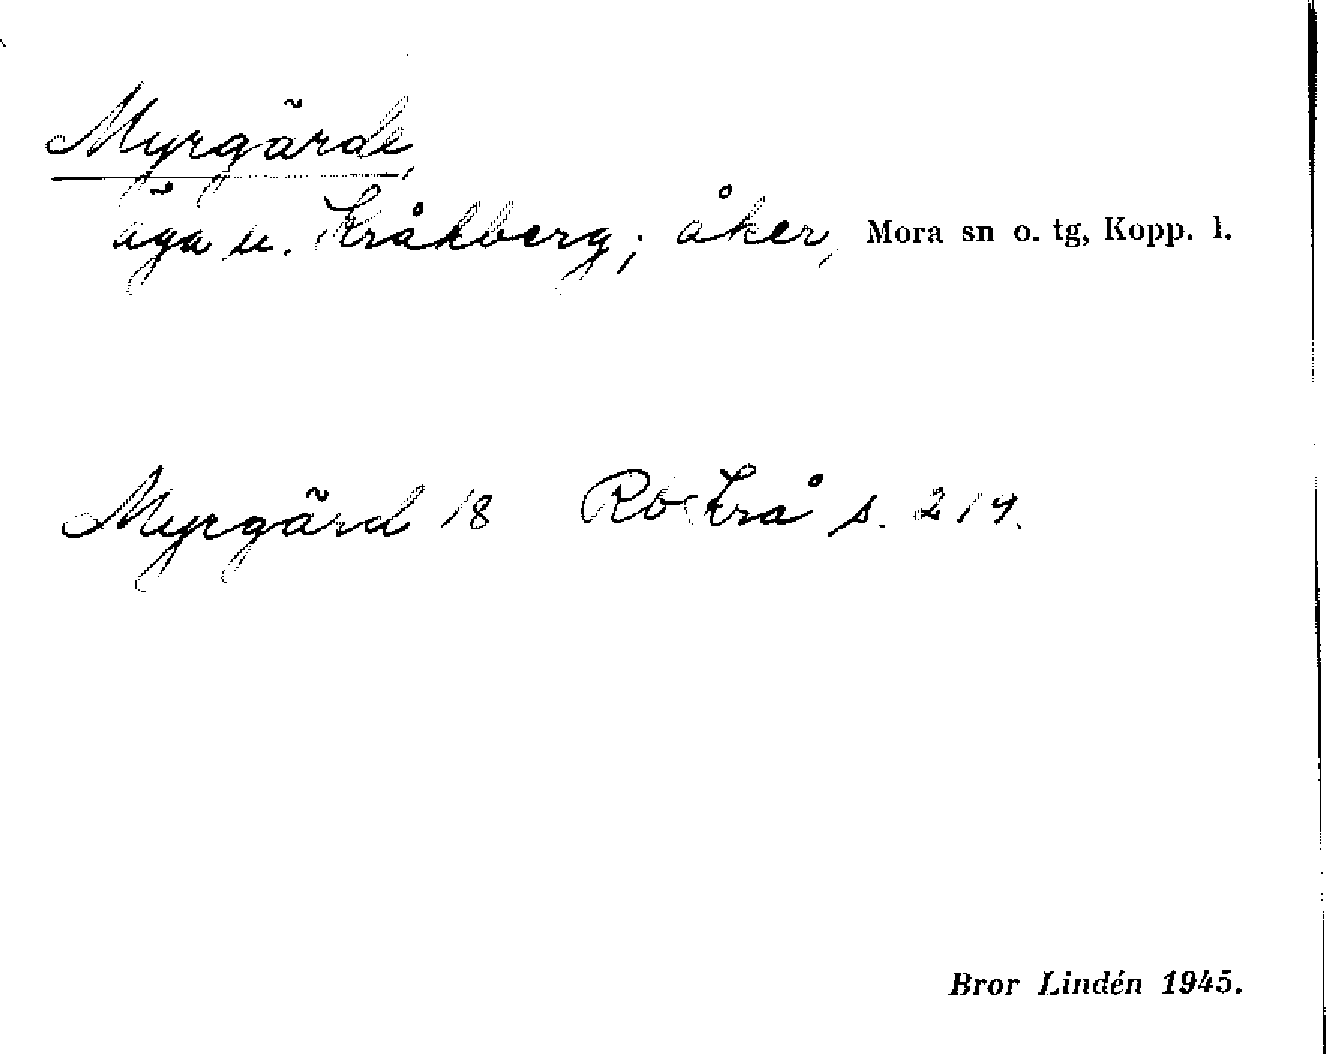 Myrgärde,
äga u. Kråkberg; åker, Mora sn o. tg, Kopp. l.
Myrgärd 18 Rb Krå s. 214.
Bror Lindén 1945.